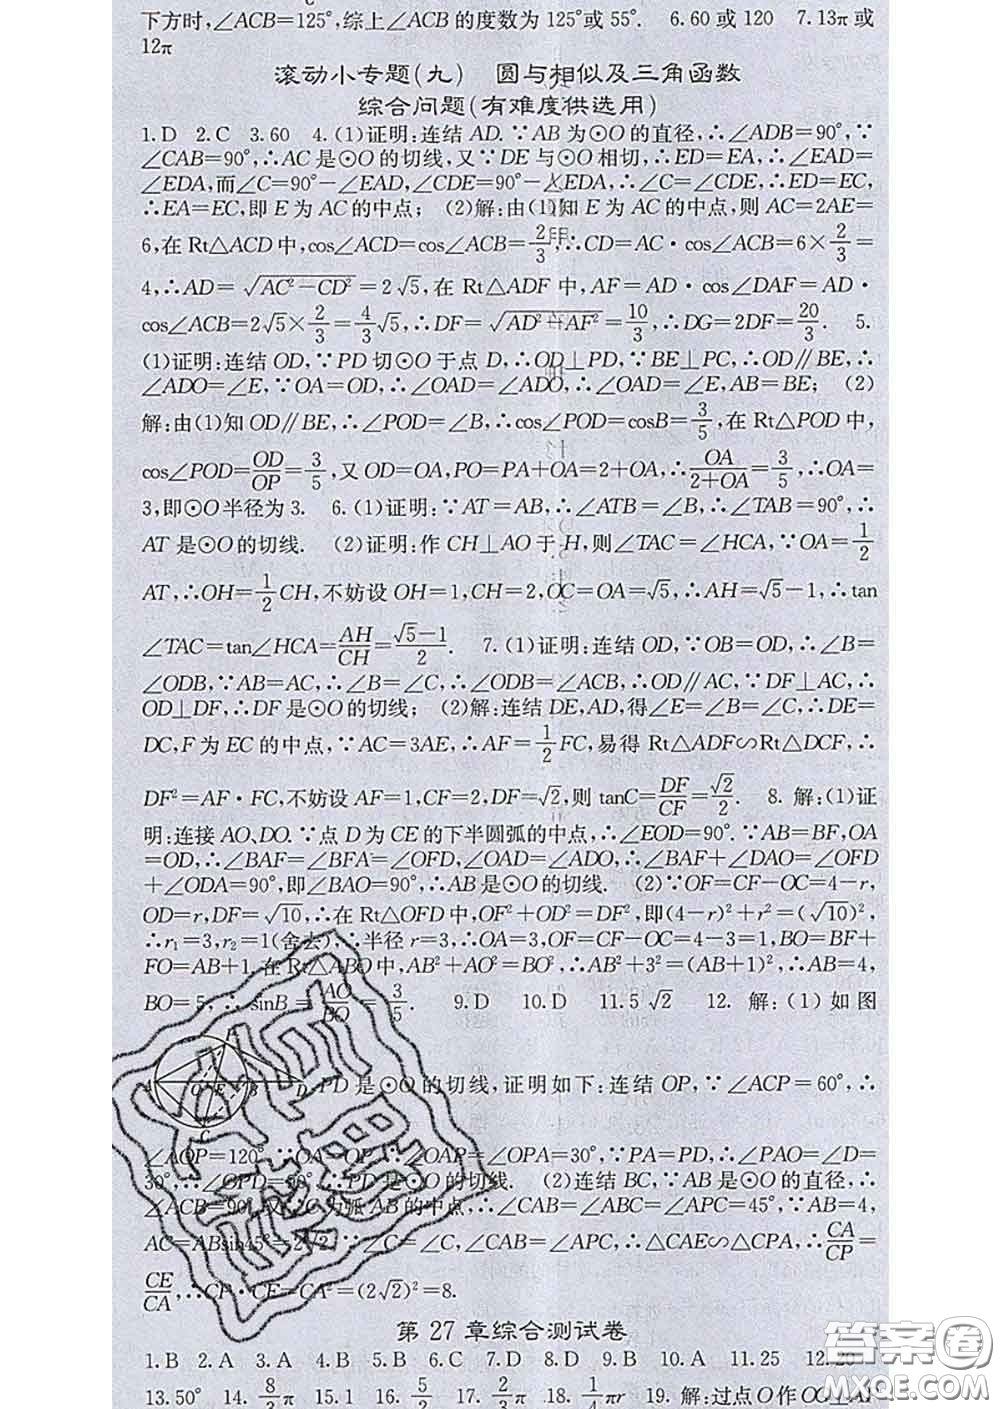 下方时,∠ACB=125°,综上∠ACB的度数为125°或55°. 6.60或120 7.13π或
12π
滚动小专题(九) 圆与相似及三角函数
综合问题(有难度供选用)
1.D 2.C 3.60 4.(1)证明:连结AD.∵AB为⊙O的直径,∴∠ADB=90°,∵
∠CAB=90°,∴AC是⊙O的切线,又∵DE与⊙O相切,∴ED=EA,∴∠EAD=
∠EDA,而∠C=90°-∠EAD,∠CDE=90°-∠EDA,∴∠C=∠CDE,∴ED=EC,
∴EA=EC,即E为AC的中点; (2)解:由(1)知E为AC的中点,则AC=2AE=
6,在Rt△ACD中,cos∠ACD=cos∠ACB=2/3,∴CD=AC·cos∠ACB=6×2/3=
4,∴AD=√(AC²-CD²)=2√5,在Rt△ADF中,AF=AD·cos∠DAF=AD·
cos∠ACB=2√5×2/3=4/3√5,∴DF=√(AD²-AF²)=10/3,∴DG=2DF=20/3. 5.
(1)证明:连结OD,∵PD切⊙O于点D,∴OD⊥PD,∵BE⊥PC,∴OD∥BE,∴
∠ADO=∠E,∵OA=OD,∴∠OAD=∠ADO,∴∠OAD=∠E,AB=BE; (2)
解:由(1)知OD∥BE,∴∠POD=∠B,∴cos∠POD=cosB=3/5,在Rt△POD中,
cos∠POD=OD/OP=3/5,又OD=OA,PO=PA+OA=2+OA,∴OA/(2+OA)=3/5,∴OA=
3,即⊙O半径为3. 6.(1)证明:∵AT=AB,∴∠ATB=∠B,∴∠TAB=90°,∴
AT是⊙O的切线. (2)证明:作CH⊥AO于H,则∠TAC=∠HCA,∵OA=1/2
AT,∴OH=1/2CH,不妨设OH=1,CH=2,OC=OA=√5,∴AH=√5-1,∴tan
∠TAC=tan∠HCA=AH/CH=(√5-1)/2. 7.(1)证明:连结OD,∵OB=OD,∴∠B=
∠ODB,∵AB=AC,∴∠B=∠C,∴∠ODB=∠ACB,∴OD∥AC,∵DF⊥AC,∴
OD⊥DF,∴DF是⊙O的切线; (2)解:连结DE,AD,得∠E=∠B=∠C,∴DE=
DC,F为EC的中点,∵AC=3AE,∴AF=1/2FC,易得Rt△ADF∽Rt△DCF,∴
DF²=AF·FC,不妨设AF=1,CF=2,DF=√2,则tanC=DF/CF=√2/2. 8.解:(1)证
明:连接AO、DO.∵点D为CE的下半圆弧的中点,∴∠EOD=90°.∵AB=BF,OA
=OD,∴∠BAF=∠BFA=∠OFD,∠OAD=∠ADO,∴∠BAF+∠DAO=∠OFD
+∠ODA=90°,即∠BAO=90°,∴AB是⊙O的切线. (2)∵OF=CF-OC=4-r,
OD=r,DF=√10,∴在Rt△OFD中,OF²+OD²=DF²,即(4-r)²+r²=(√10)²,
∴r₁=3,r₂=1(舍去),∴半径r=3,∴OA=3,OF=CF-OC=4-3=1,BO=BF+
FO=AB+1.在Rt△ABO中,AB²+AO²=BO²,∴AB²+3²=(AB+1)²,∴AB=4,
BO=5,∴sinB=AO/BO=3/5. 9.D 10.D 11.5√2 12.解:(1)如图
PD是⊙O的切线,证明如下:连结OP,∵∠ACP=60°,∴
∠AOP=120°,∵OA=OP,∴∠OAP=∠OPA=30°,∵PA=PD,∴∠PAO=∠D=
30°,∴∠OPD=90°,∴PD是⊙O的切线. (2)连结BC,∵AB是⊙O的直径,∴
∠ACB=90°,又∵C为弧AB的中点,∴∠CAB=∠ABC=∠APC=45°,∵AB=4,
AC=ABsin45°=2√2,∵∠C=∠C,∠CAB=∠APC,∴△CAE∽△CPA,∴CA/CP=
CE/CA,∴CP·CE=CA²=(2√2)²=8.
第27章综合测试卷
1.B 2.A 3.A 4.B 5.B 6.C 7.D 8.D 9.B 10.A 11.25 12.20
13.50° 14.8/3π 15.1 16.5/2 17.3/2π 18.1/4πr 19.解:过点O作OC⊥AP
答案圈
MXQE.COM